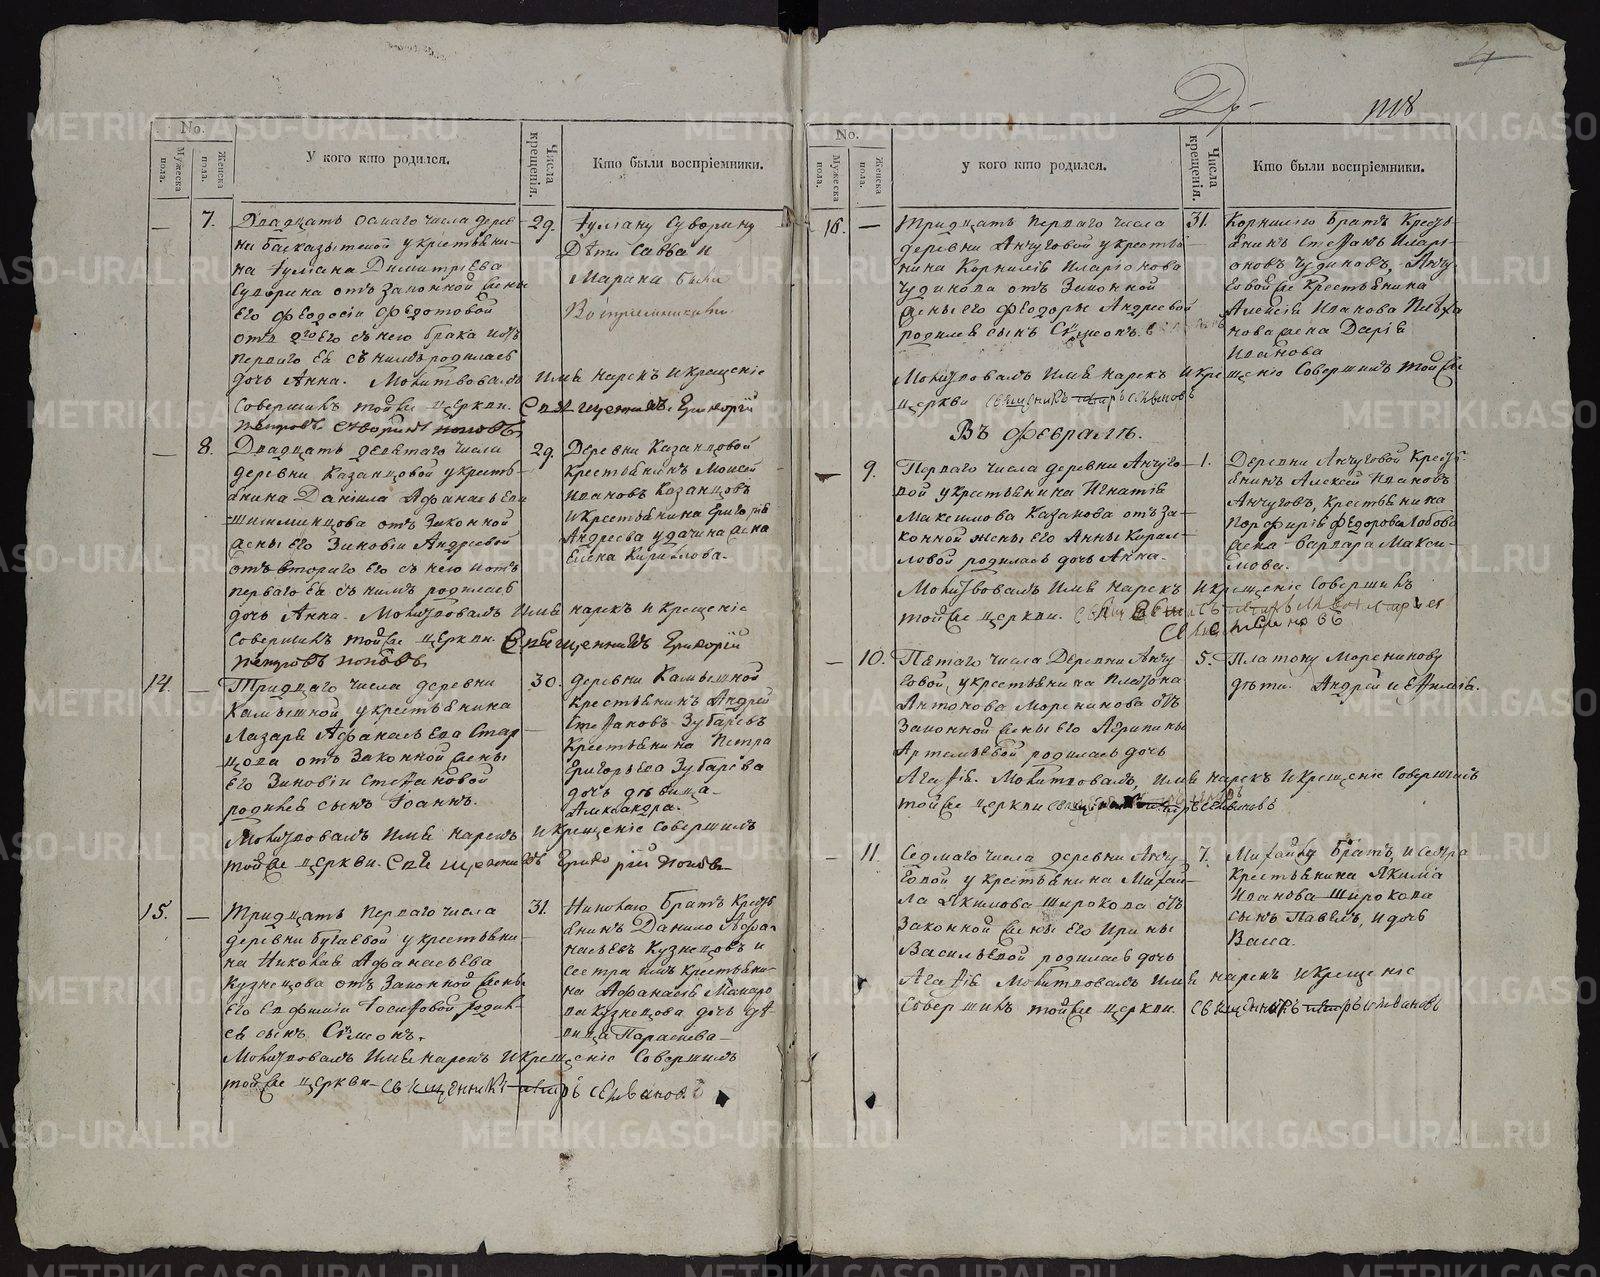 4
1118
No.
Мужеска пола.
Женска пола.
У кого кто родился.
Числа крещенія.
Кто были воспріемники.
— 7. Двадцать осмаго числа дерев-
ни у крестьяни-
на Іуліана Димитріева
Суворина отъ законной жены
его Феодосіи Федотовой
отъ его съ нею брака
перваго ея съ нимъ родилась
дочь Анна. Молитвовалъ имя нарекъ и крещеніе
совершилъ той же церкви. Священникъ Григорій
29. Іуліану Суворину
Дѣти Савва и
Марина были
Воспріемниками
— 8. Двадцать девятаго числа
деревни Казанцовой у кресть-
янина Даніила Афанасьева
отъ законной
жены его Зиновіи Андреевой
отъ втораго его съ нею и отъ
перваго ея съ нимъ родилась
дочь Анна. Молитвовалъ имя нарекъ и крещеніе
совершилъ той же церкви. Священникъ Григорій
Петровъ Поповъ
29. Деревни Казанцовой
крестьянинъ Моисей
Ивановъ Казанцовъ
и крестьянина Григорія
Андреева Удачина жена
Елена Кирилова.
14. — Тридцаго числа деревни
Камышной у крестьянина
Лазаря Афанасьева Стар
цова отъ законной жены
его Зиновіи Стефановой
родился сынъ Іоаннъ.
Молитвовалъ имя нарекъ и крещеніе совершилъ
той же церкви. Священникъ Григорій Поповъ
30. деревни Камышной
крестьянинъ Андрей
Стефановъ Зубаревъ
крестьянина Петра
Григорьева Зубарева
дочь дѣвица
Александра.
15. — Тридцать перваго числа
деревни Бугаевой у крестьяни-
на Николая Афанасьева
Кузнецова отъ законной жены
его Евфиміи Іосифовой родил-
ся сынъ Сѵмеонъ.
Молитвовалъ имя нарекъ и крещеніе совершилъ
той же церкви — священникъ Петръ Селивановъ
31. Николаю братъ кресть
янинъ Данило Афа-
насьевъ Кузнецовъ и
сестра имъ крестьяни-
на Афанасія Макаро
ва Кузнецова дочь дѣ-
вица Параскева —
No.
Мужеска пола.
Женска пола.
у кого кто родился.
Числа крещенія.
Кто были воспріемники.
16. — Тридцать перваго числа
деревни Анчуговой у кресть-
янина Корнилія Иларіонова
Чудинова отъ законной
жены его Феодоры Андреевой
родился сынъ Сѵмеонъ.
Молитвовалъ имя нарекъ и крещеніе совершилъ той же
церкви священникъ Петръ Селивановъ
31. Корнилію братъ кресть-
янинъ Стефанъ Илари-
оновъ Чудиновъ, Анчу-
говой же крестьянина
Алексія Иванова
нова жена Дарія
Иванова
Въ Февралѣ.
— 9. Перваго числа деревни Анчуго-
вой у крестьянина Игнатія
Максимова Казанова отъ за-
конной жены его Анны Кирил-
ловой родилась дочь Анна.
Молитвовалъ имя нарекъ и крещеніе совершилъ
той же церкви.
1. Деревни Анчуговой кресть-
янинъ Алексей Ивановъ
Анчуговъ, крестьянина
Порфирія Федорова Лобова
жена Варвара Макси-
мова.
— 10. Пятаго числа Деревни Анчу
говой у крестьянина Платона
Антонова Моренинова отъ
законной жены его Агрипины
Артемьевой родилась дочь
Агафія. Молитвовалъ, имя нарекъ и крещеніе совершилъ
той же церкви священникъ Петръ Селивановъ
5. Платону Моренинову
дѣти. Андрей и Евфимія.
— 11. Седмаго числа деревни Анчу
говой у крестьянина Михаи-
ла Якимова Широкова отъ
законной жены его Ирины
Васильевой родилась дочь
Агафія Молитвовалъ имя нарекъ и крещеніе
совершилъ той же церкви. священникъ Петръ Селивановъ
7. Михаилу братъ, и сестра
крестьянина Якима
Иванова Широкова
сынъ Павелъ, и дочь
Васса.
METRIKI.GASO-URAL.RU